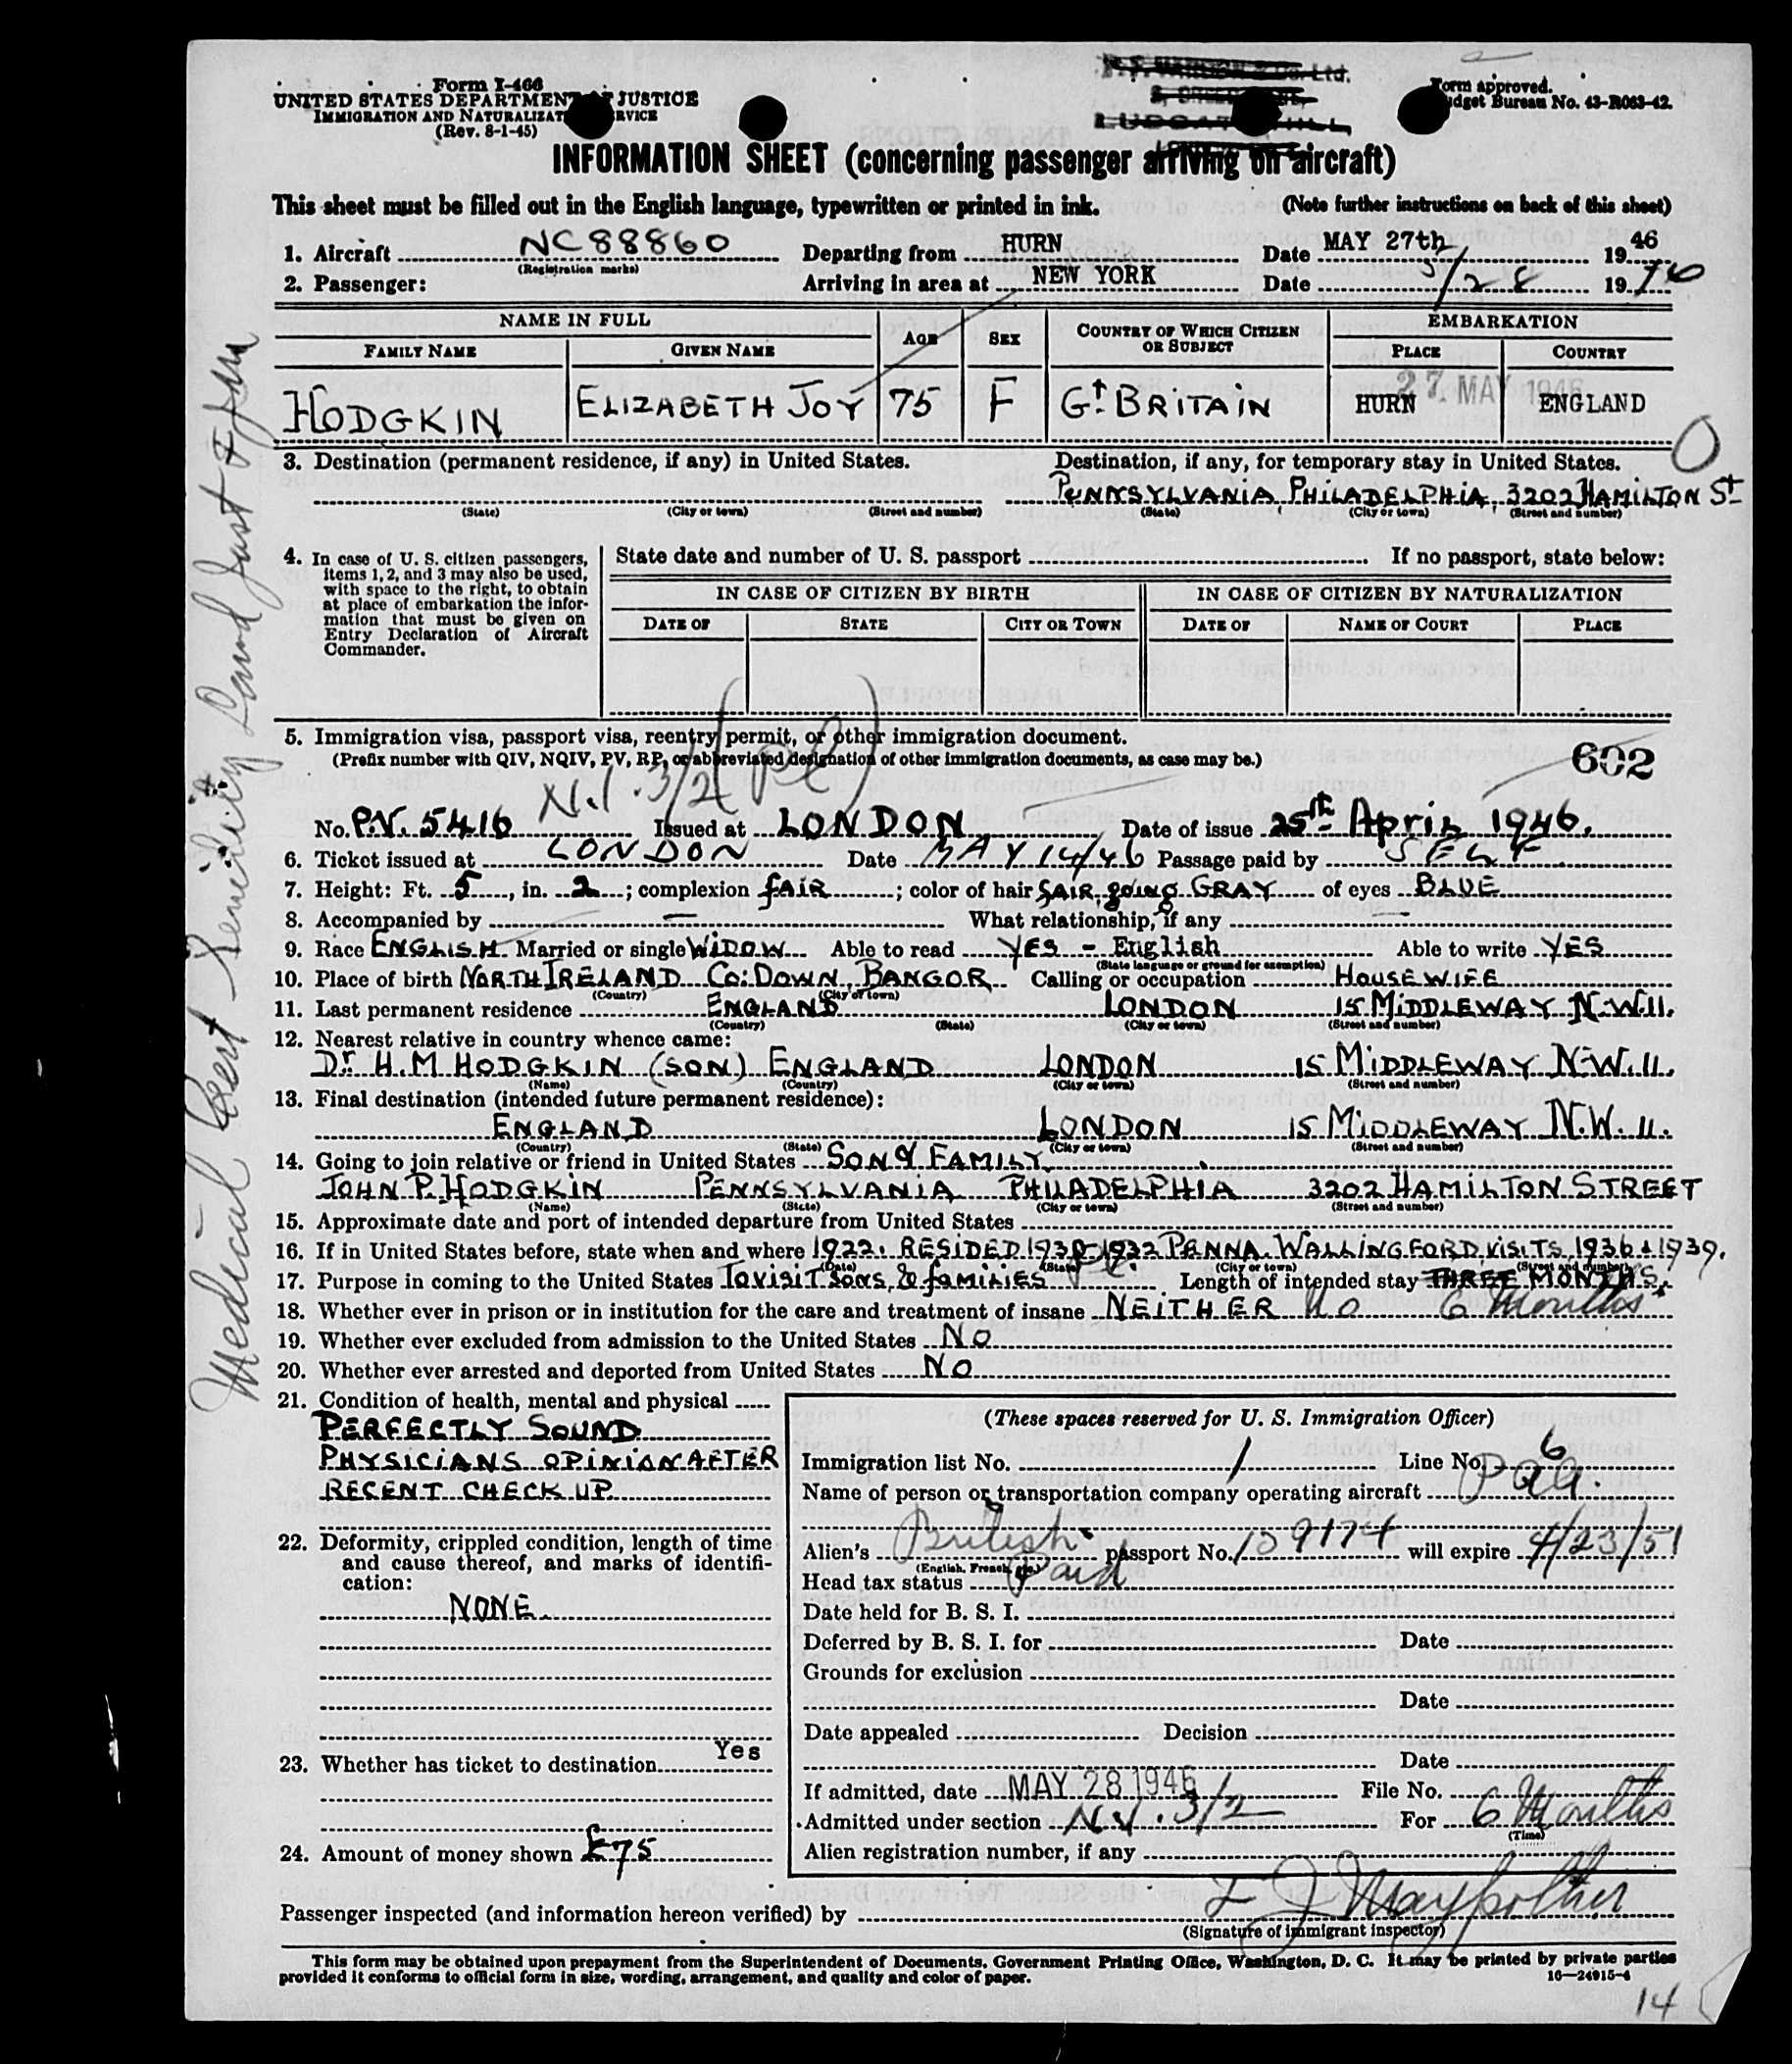 Form I-466
UNITED STATES DEPARTMENT OF JUSTICE
IMMIGRATION AND NATURALIZATION SERVICE
(Rev. 8-1-45)
Form approved.
Budget Bureau No. 43-R063-42.
INFORMATION SHEET (concerning passenger arriving on aircraft)
This sheet must be filled out in the English language, typewritten or printed in ink. (Note further instructions on back of this sheet)
1. Aircraft NC88860 Departing from HURN Date MAY 27th 1946
(Registration marks)
2. Passenger: Arriving in area at NEW YORK Date 5/28 1946
NAME IN FULL AGE SEX COUNTRY OF WHICH CITIZEN OR SUBJECT EMBARKATION
FAMILY NAME GIVEN NAME PLACE COUNTRY
27 MAY 1946
HODGKIN ELIZABETH JOY 75 F Gt. BRITAIN HURN ENGLAND
O
3. Destination (permanent residence, if any) in United States. Destination, if any, for temporary stay in United States.
PENNSYLVANIA PHILADELPHIA, 3202 HAMILTON St
(State) (City or town) (Street and number) (State) (City or town) (Street and number)
4. In case of U. S. citizen passengers, items 1, 2, and 3 may also be used, with space to the right, to obtain at place of embarkation the information that must be given on Entry Declaration of Aircraft Commander.
State date and number of U. S. passport If no passport, state below:
IN CASE OF CITIZEN BY BIRTH IN CASE OF CITIZEN BY NATURALIZATION
DATE OF STATE CITY OR TOWN DATE OF NAME OF COURT PLACE
5. Immigration visa, passport visa, reentry permit, or other immigration document.
(Prefix number with QIV, NQIV, PV, RP, or abbreviated designation of other immigration documents, as case may be.)
602
N.I. 3/2 (Pl)
No. P.V. 5416 Issued at LONDON Date of issue 25th April 1946.
6. Ticket issued at LONDON Date MAY 14/46 Passage paid by SELF
7. Height: Ft. 5, in. 2; complexion FAIR; color of hair FAIR, going GRAY of eyes BLUE
8. Accompanied by — What relationship, if any —
9. Race ENGLISH Married or single WIDOW Able to read YES - English Able to write YES
(State language or ground for exemption)
10. Place of birth NORTH IRELAND Co: DOWN, BANGOR Calling or occupation HOUSEWIFE
(Country) (City or town)
11. Last permanent residence ENGLAND LONDON 15 MIDDLEWAY N.W.11.
(Country) (State) (City or town) (Street and number)
12. Nearest relative in country whence came:
Dr. H. M HODGKIN (SON) ENGLAND LONDON 15 MIDDLEWAY N.W.11.
(Name) (Country) (City or town) (Street and number)
13. Final destination (intended future permanent residence):
ENGLAND LONDON 15 MIDDLEWAY N.W. 11.
(Country) (State) (City or town) (Street and number)
14. Going to join relative or friend in United States SON & FAMILY
JOHN P. HODGKIN PENNSYLVANIA PHILADELPHIA 3202 HAMILTON STREET
(Name) (State) (City or town) (Street and number)
15. Approximate date and port of intended departure from United States
16. If in United States before, state when and where 1922. RESIDED 1930-1932 PENNA. WALLINGFORD. VISITS 1936 & 1939.
(Date) (State) (City or town) (Street and number)
17. Purpose in coming to the United States To VISIT SONS, & FAMILIES Pl. Length of intended stay THREE MONTHS.
18. Whether ever in prison or in institution for the care and treatment of insane NEITHER No 6 Months
19. Whether ever excluded from admission to the United States NO
20. Whether ever arrested and deported from United States NO
21. Condition of health, mental and physical
PERFECTLY SOUND
PHYSICIANS OPINION AFTER
RECENT CHECK UP
22. Deformity, crippled condition, length of time and cause thereof, and marks of identification:
NONE.
23. Whether has ticket to destination Yes
24. Amount of money shown £75
(These spaces reserved for U. S. Immigration Officer)
Immigration list No. 1 Line No. 6
Name of person or transportation company operating aircraft Paa.
Alien's British passport No. 109174 will expire 4/23/51
(English, French, etc.)
Head tax status Paid
Date held for B. S. I.
Deferred by B. S. I. for Date
Grounds for exclusion
Date
Date appealed Decision
Date
If admitted, date MAY 28 1946 File No.
Admitted under section N.I. 3/2 For 6 Months
(Time)
Alien registration number, if any
Passenger inspected (and information hereon verified) by
(Signature of immigrant inspector)
This form may be obtained upon prepayment from the Superintendent of Documents, Government Printing Office, Washington, D. C. It may be printed by private parties
provided it conforms to official form in size, wording, arrangement, and quality and color of paper.
16—24915-4
14
Medical Cert Senility